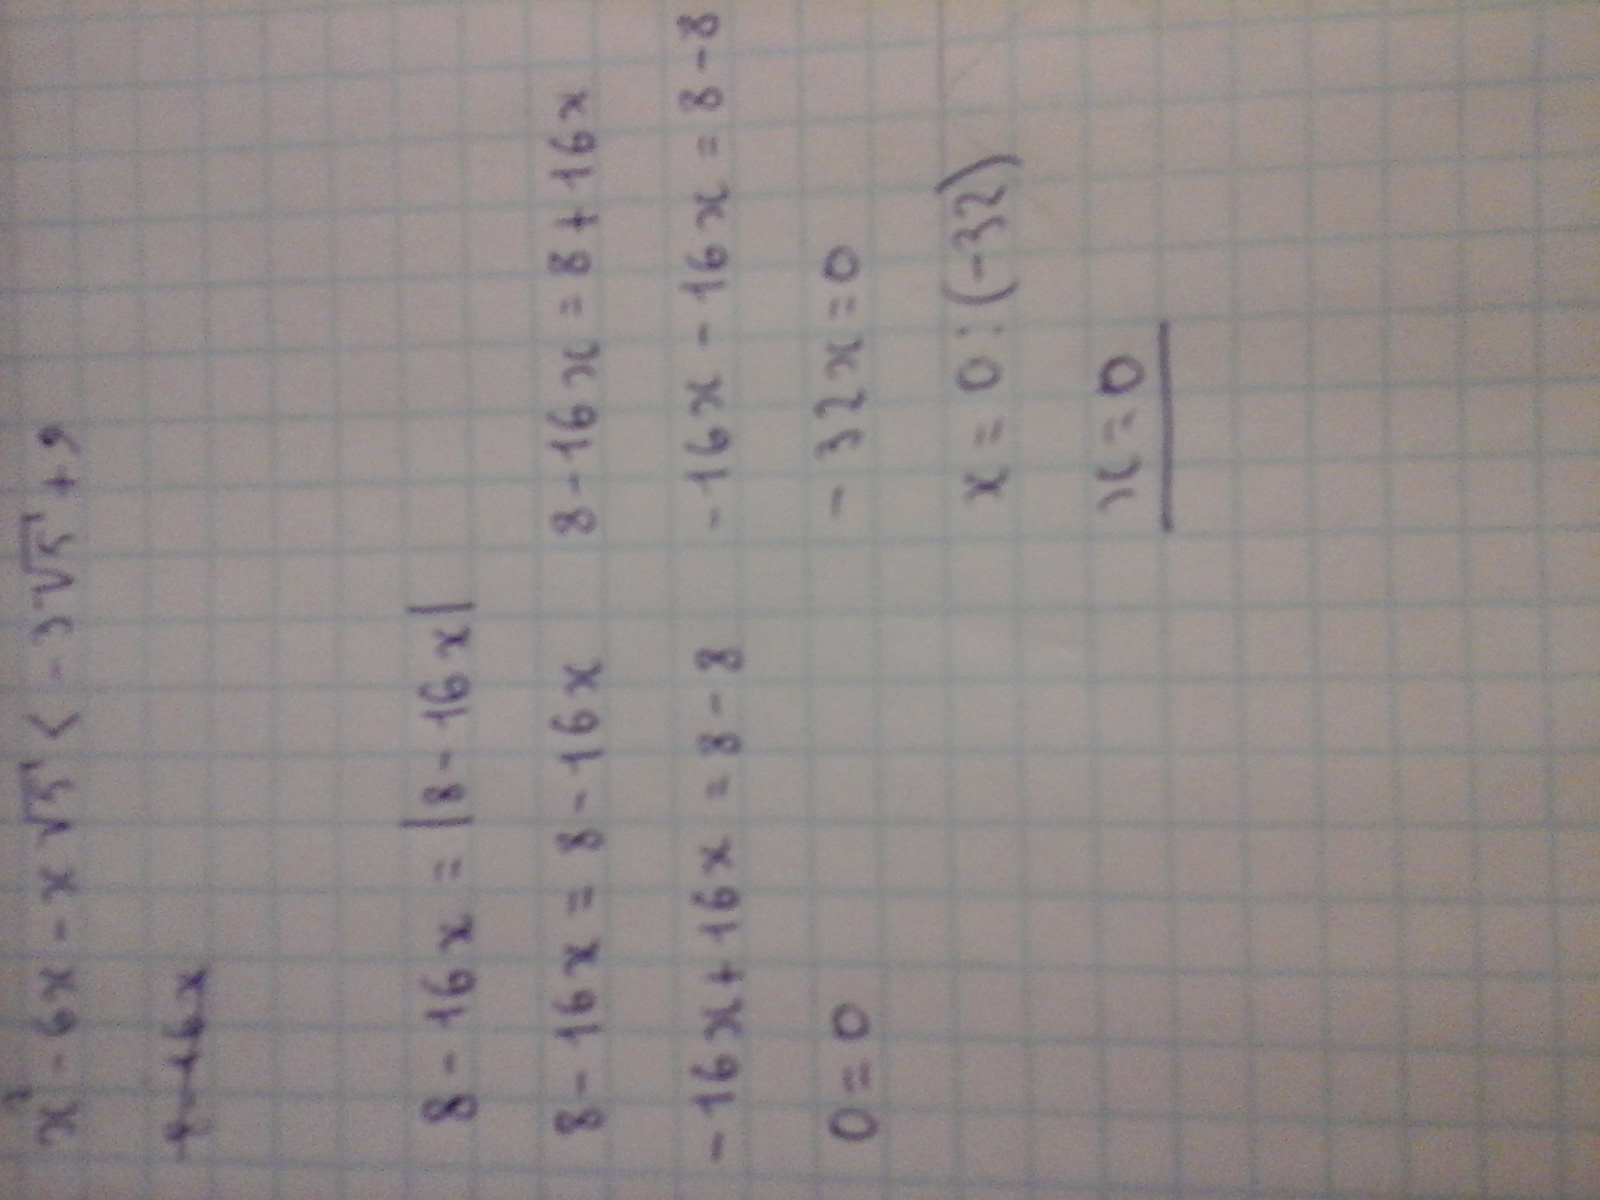 x² - 6x - x√5 < - 3√5 + 9
8 - 16x = |8 - 16x|
8 - 16x = 8 - 16x 8 - 16x = 8 + 16x
- 16x + 16x = 8 - 8 - 16x - 16x = 8 - 8
0 = 0 - 32x = 0
x = 0 : (-32)
x = 0